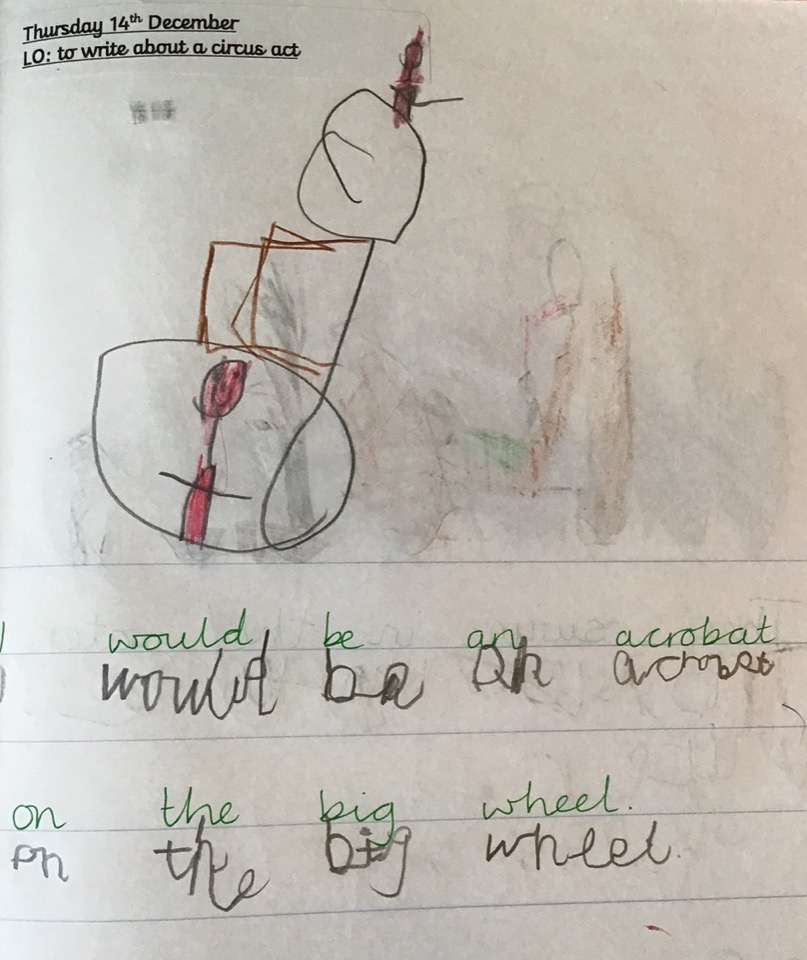 Thursday 14th December
LO: to write about a circus act
I would be an acrobat
I would be an acrobat
on the big wheel.
on the big wheel.